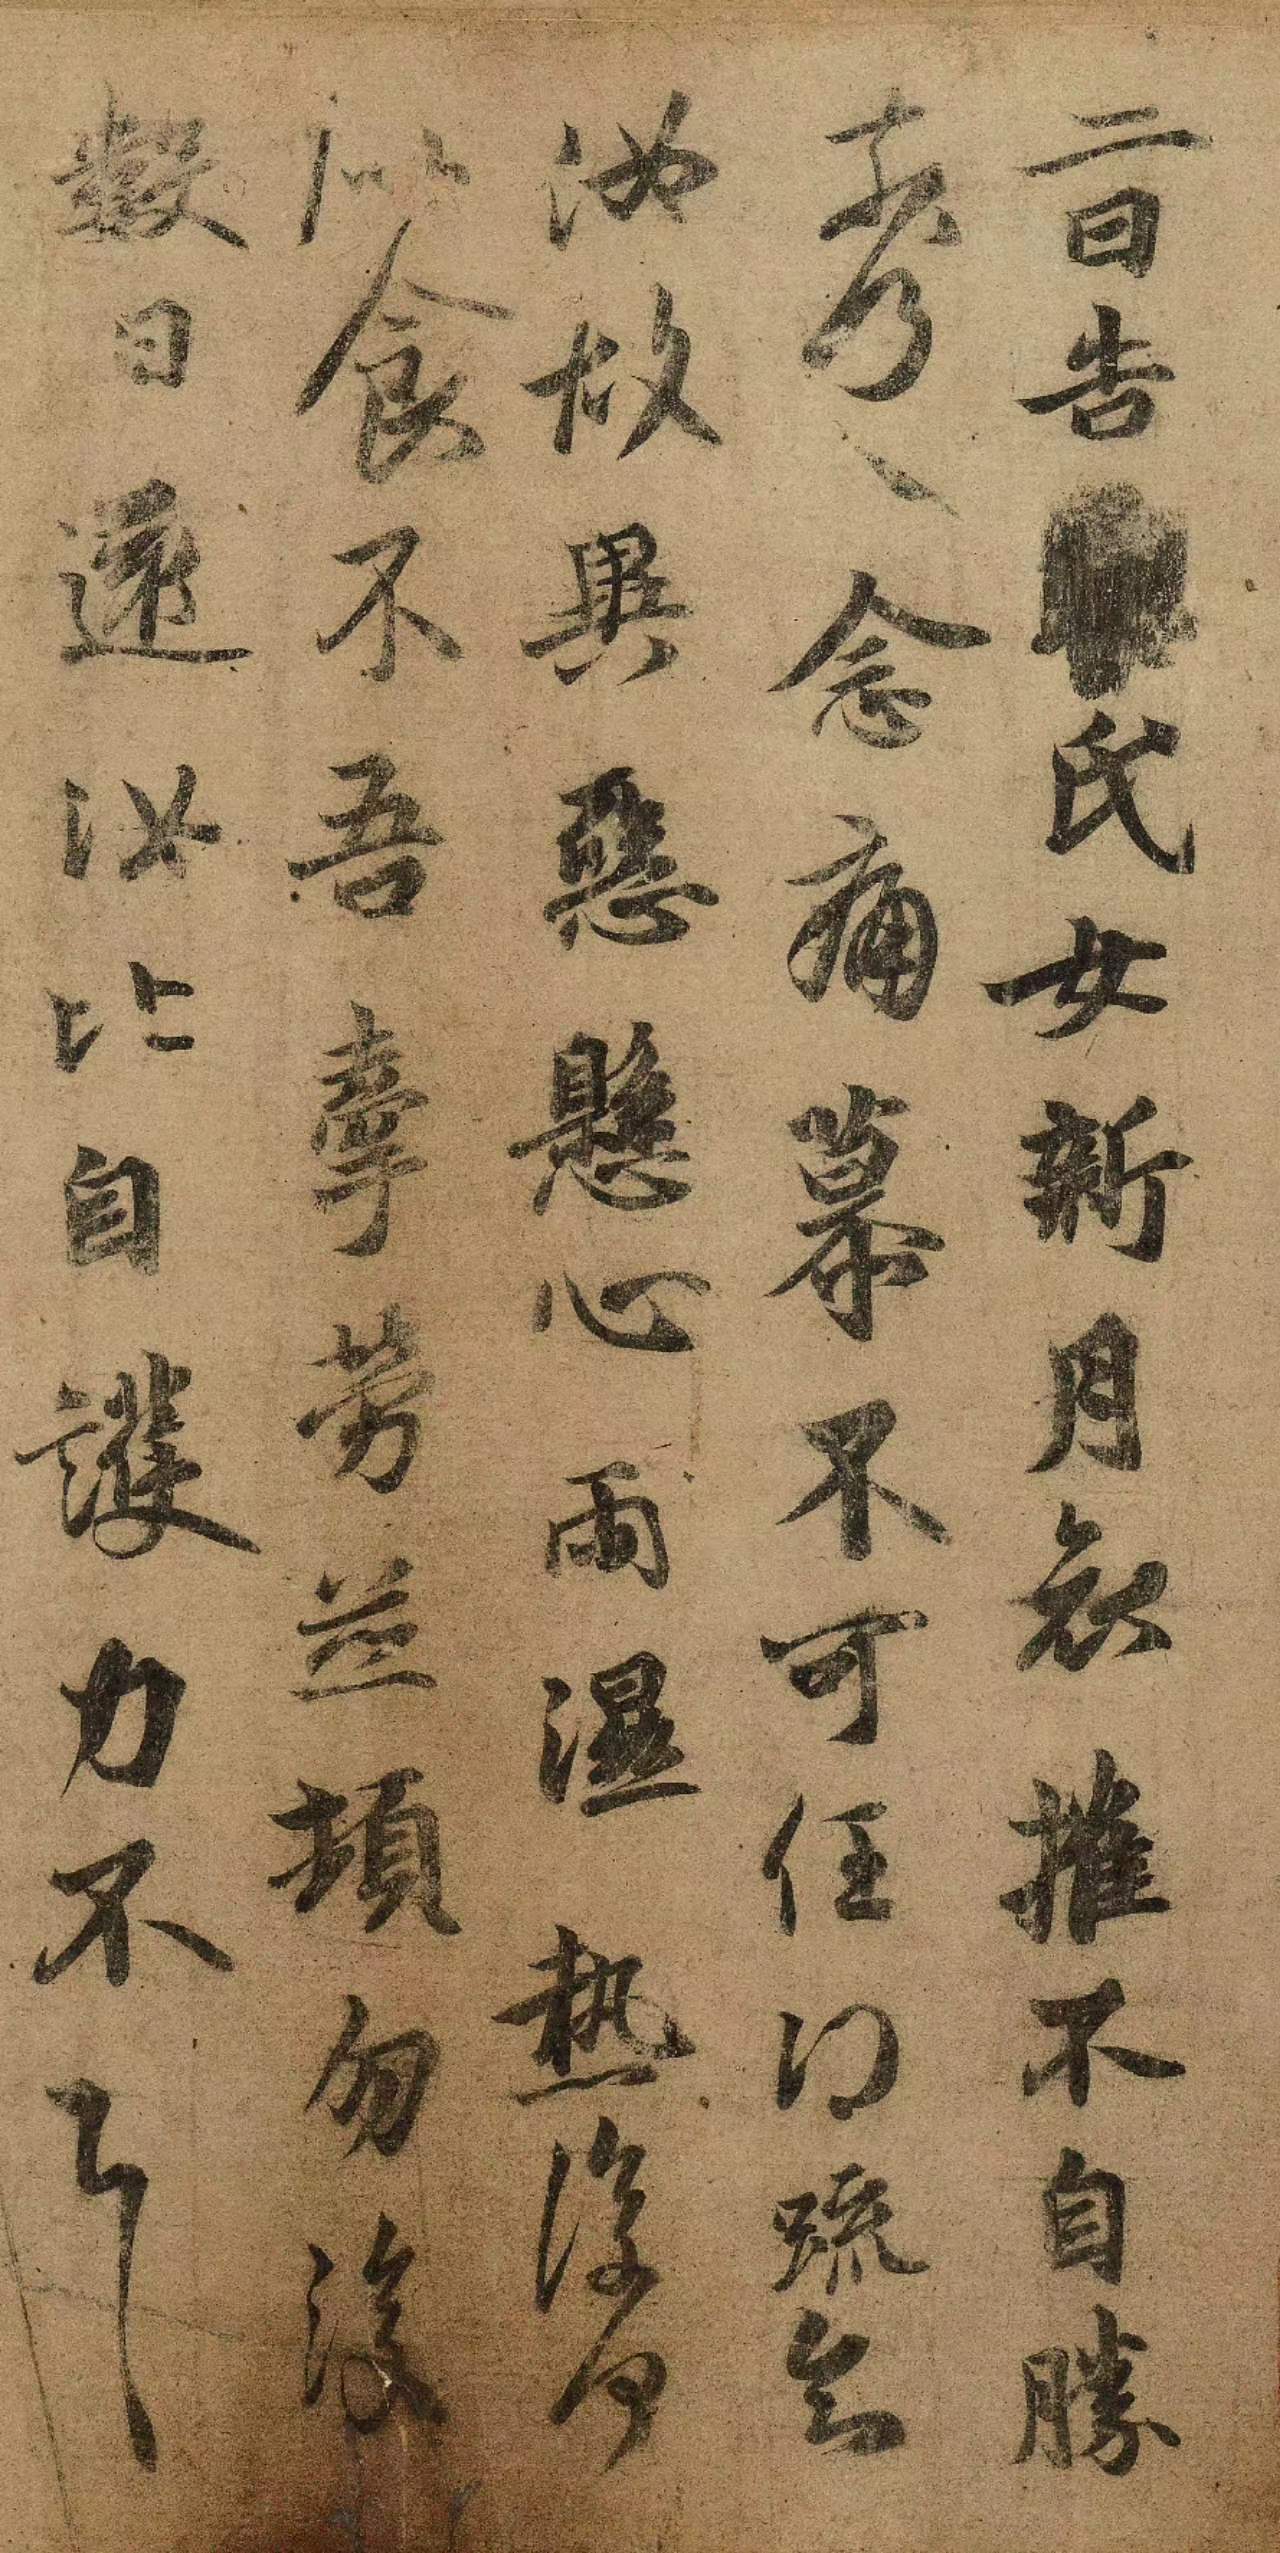 二日告氏女新月哀摧不自勝
奈何奈何念痛慕不可任得疏知
汝故異惡懸心雨濕熱復何
似食不吾牽勞並頓勿復
數日還汝比自護力不